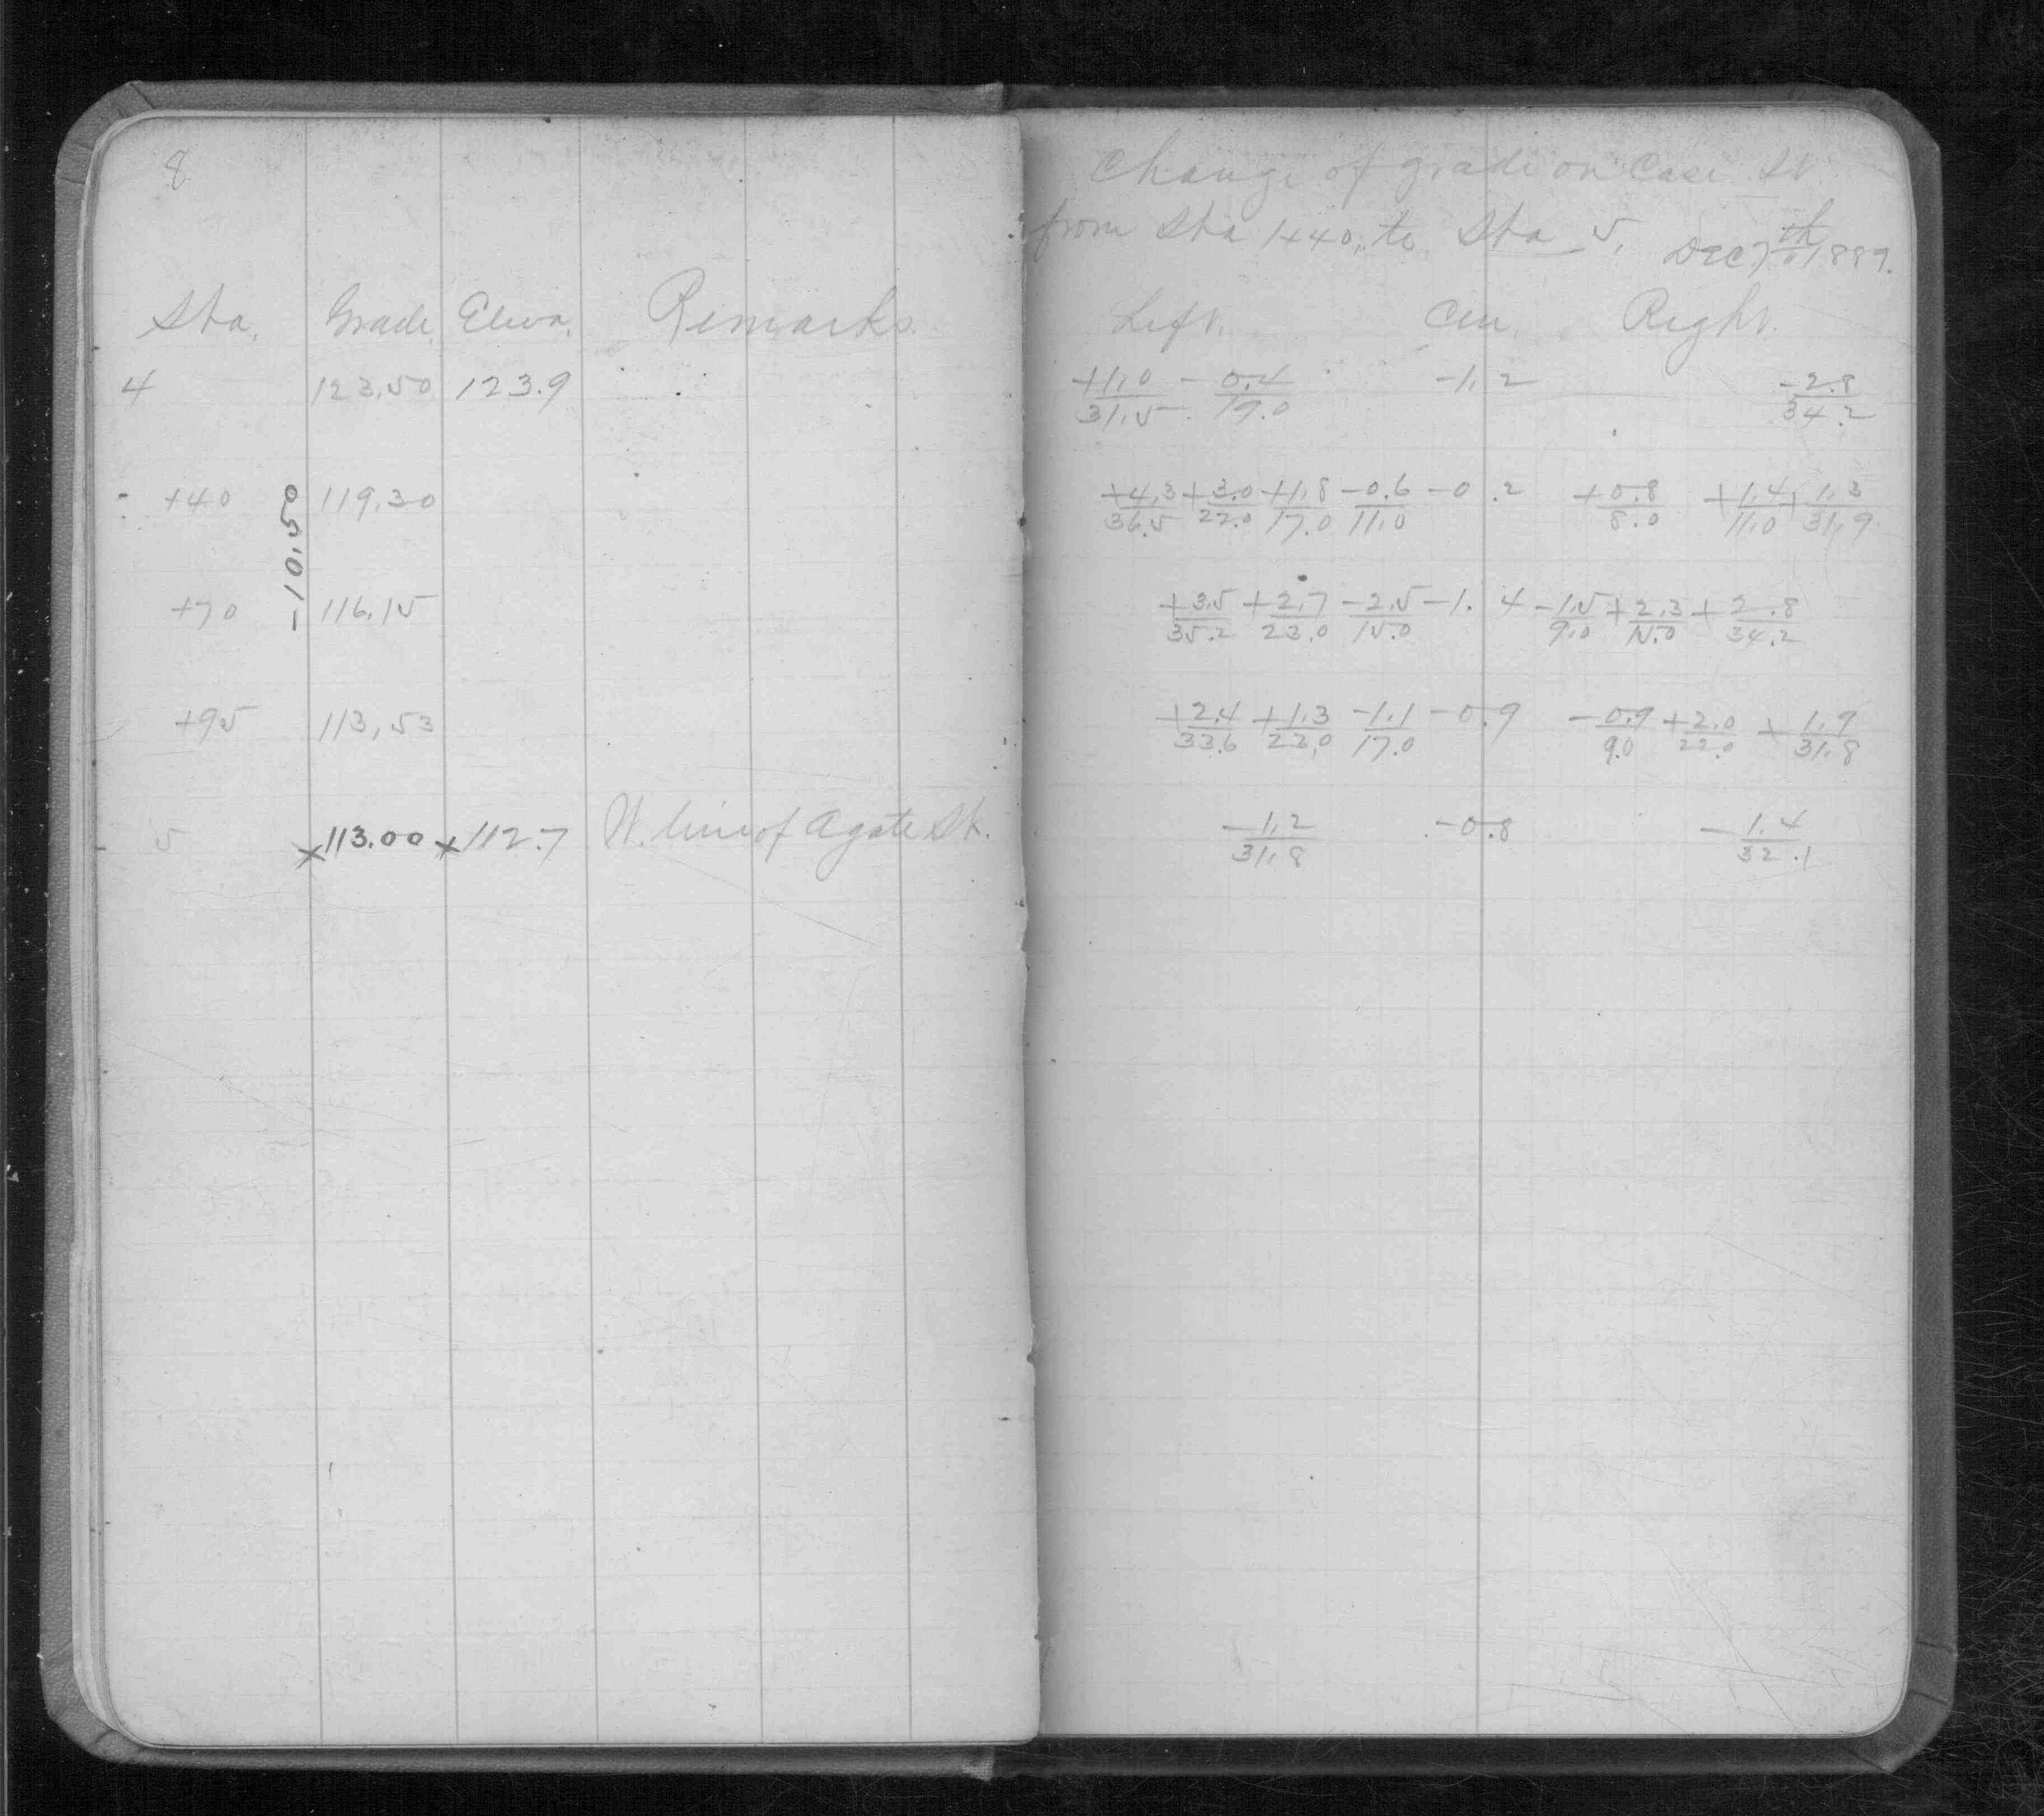 8
Sta. Grade. Eleva. Remarks.
4 123.50 123.9
+40 119.30
-10.50
+70 116.15
+95 113.53
5 x113.00 x112.7 W. line of Agate St.
Change of grade on Case St.
from Sta 1+40, to Sta 5. Dec 7th 1889.
Left. Cen. Right.
+1.0/31.5 -0.4/19.0 -1.2 -2.8/34.2
+4.3/36.5 +3.0/22.0 +1.8/17.0 -0.6/11.0 -0.2 +0.8/8.0 +1.4/11.0 +1.3/31.9
+3.5/35.2 +2.7/23.0 -2.5/15.0 -1.4 -1.5/9.0 +2.3/15.0 +2.8/34.2
+2.4/33.6 +1.3/23.0 -1.1/17.0 -0.9 -0.9/9.0 +2.0/22.0 +1.9/31.8
-1.2/31.8 -0.8 -1.4/32.1